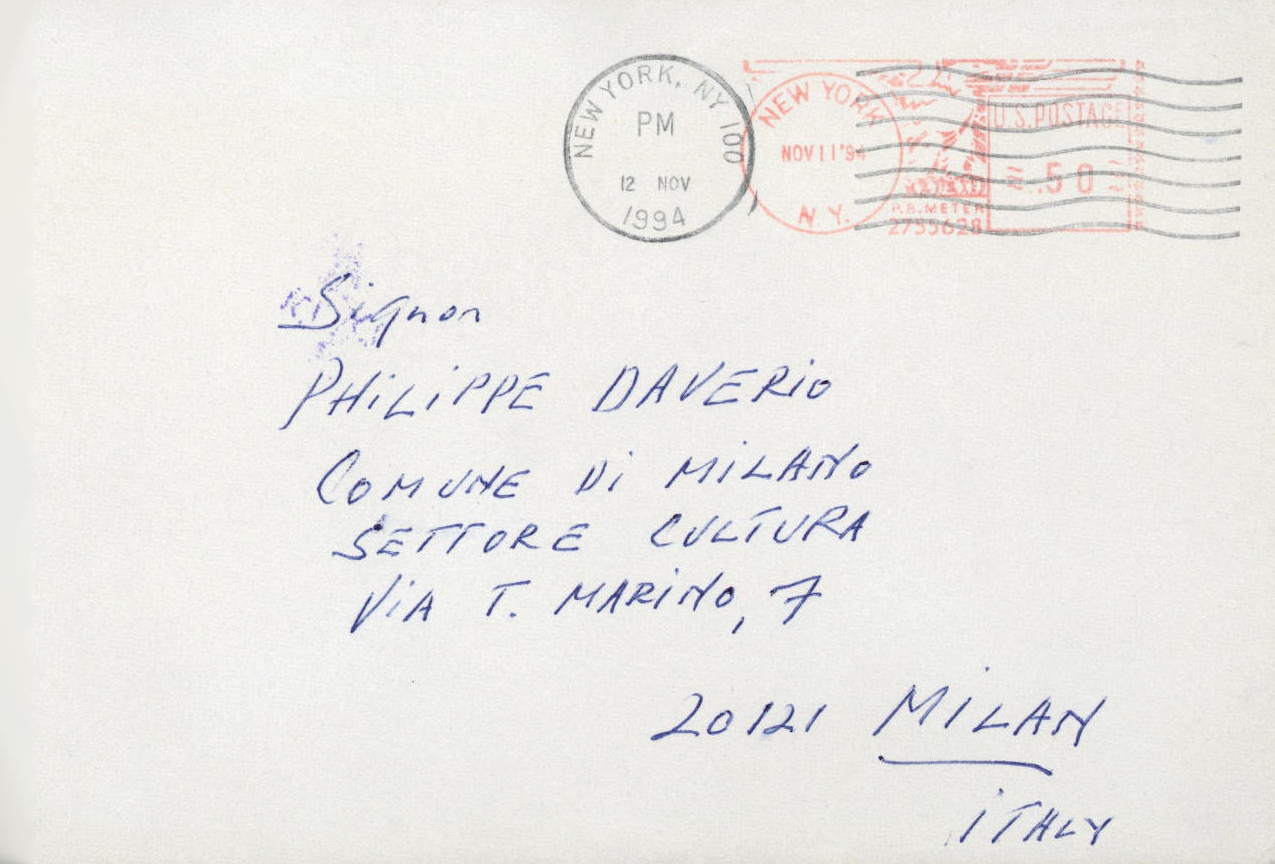 NEW YORK, NY 100
PM
12 NOV
1994
NEW YORK
NOV 11 '94
N.Y.
U.S. POSTAGE
.50
P.B. METER
Signor
PHiLiPPE DAVERiO
COMUNE Di MiLANO
SETTORE CULTURA
ViA T. MARiNO, 7
20121 MiLAN
iTALY